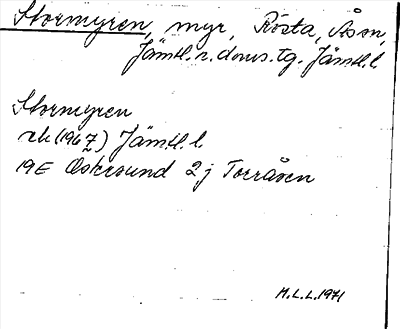 Stormyren, myr, Rösta, Åsn,
Jämtl. n. doms. tg. Jämtl. l
Stormyren
rk (1967) Jämtl. l.
19E Östersund 2j Torråsen
M.L.L. 1971